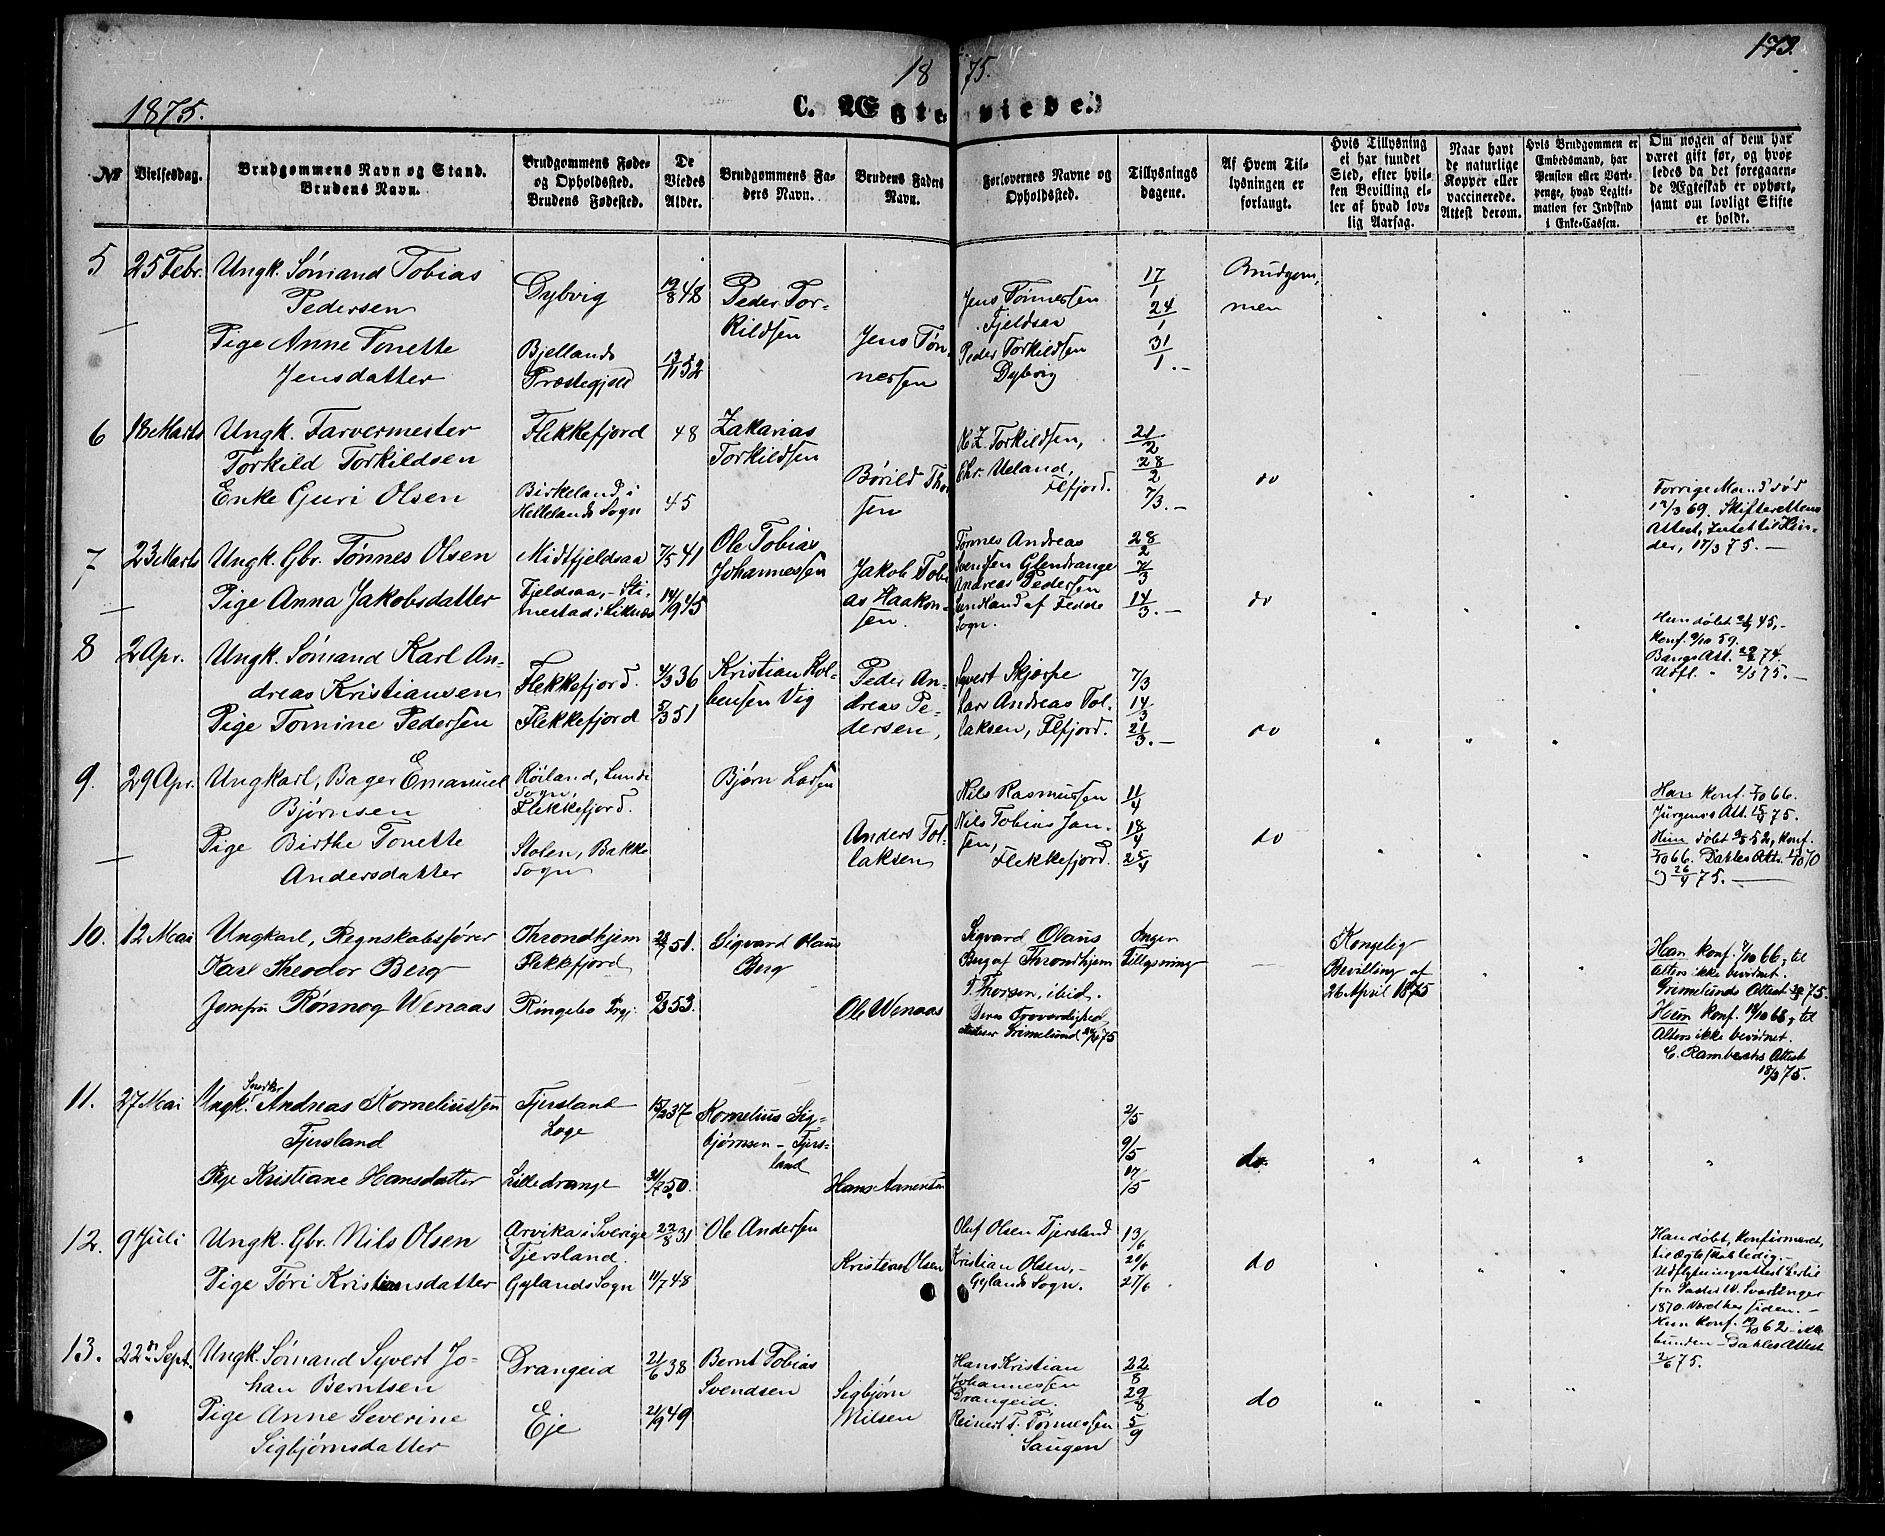 173.
18 75.
1875.
C. Ægteviede.
№
Vielsesdag.
Brudgommens Navn og Stand.
Brudens Navn.
Brudgommens Føde-
og Opholdssted.
Brudens Fødested.
De
Viedes
Alder.
Brudgommens Fa-
ders Navn.
Brudens Faders
Navn.
Forlovernes Navne og
Opholdssted.
Tillysnings
dagene.
Af Hvem Til-
lysningen er
forlangt.
Hvis Tillysning
ei har fundet
Sted, efter hvil-
ken Bevilling el-
ler af hvad lov-
lig Aarsag.
Naar havt
de naturlige
Kopper eller
vaccinerede.
Attest derom.
Hvis Brudgommen er
Embedsmand, har
Pension eller Vart-
penge, hvad Legiti-
mation for Indskud
i Enke-Cassen.
Om nogen af dem har
været gift før, og hvor-
ledes da det foregaaen-
de Ægteskab er ophørt,
samt om lovligt Skifte
er holdt.
5 25 Febr. Ungk. Sømand Tobias
Pedersen
Dybvig
19/8 48
Peder Tor-
kildsen
Pige Anne Tonette
Jensdatter
Bjellands
Præstegjeld
13/11 52
Jens Tøn-
nessen
Jens Tønnessen
Fjeldsaa
Peder Torkildsen
Dybvig
17/1
24/1
31/1 .-
Brudgom-
men
6 18 Marts Ungk. Farvermester
Torkild Torkildsen
Flekkefjord 48
Zakarias
Torkildsen
Enke Guri Olsen
Birkeland i
Hellelands Sogn
45
Børild Thor
sen
K. Z. Torkildsen,
Chr. Ueland,
Flfjord.
21/2
28/2
7/3.-
do
Forrige Mand død
12/3 69. Skifterettens
Attest, Intet til Hin-
der, 17/3 75. -
7 23 Marts Ungk. Gbr. Tønnes Olsen
Midtfjeldsaa 7/5 41
Ole Tobias
Johannessen
Pige Anna Jakobsdatter
Fjeldsaa, - Sti-
mestad i Liknes
14/9 45
Jakob Tobi
as Haakon-
sen.
Tønnes Andreas
Svendsen Glendrange
Andreas Pedersen
Sundland af Fedde
Sogn.
28/2
7/3
14/3.-
do
8 2 Apr. Ungk. Sømand Karl An-
dreas Kristiansen
Flekkefjord. 4/3 36
Kristian Kol-
bensen Vig
Pige Tomine Pedersen
Flekkefjord 5/3 51
Peder An-
dreas Pe-
dersen,
Syvert Skjerpe
Lars Andreas Tol-
laksen, Flfjord.
7/3
14/3
21/3.-
do
Hun døbt 45,-
konf. 9/10 59.
Bangs Att. 74.
Udfl. " 2/3 75.-
9. 29 Apr. Ungkarl, Bager Emanuel
Bjørnsen
Røiland, Lunde
Sogn,
Flekkefjord.
Bjørn Larsen
Pige Birthe Tonette
Andersdatter
Stolen, Bakke
Sogn
Anders Tol-
laksen
Nils Rasmussen
Nils Tobias Jan-
sen,
Flekkefjord.
11/4
18/4
25/4
do
Han konf. 7/10 66.
Jürgens Att. 75.
Hun døbt 52, konf.
7/10 66. Dahles Att. 70
og 26/4 75. -
10. 12 Mai Ungkarl, Regnskabsfører
Karl Theodor Berg
Throndhjem
Flekkefjord
51.
Sigvard Olaus
Berg
Jomfru Rønnog Wenaas
Ringebo Prgj. 5/3 53.
Ole Wenaas
Sigvard Olaus
Berg af Throndhjem
P. Thorsen, ibid.
Deres Troværdighed
attester Grimelund 75
Ingen
Tillysning
Kongelig
Bevilling af
26 April 1875
Han konf. 66, til
Alters ikke bevidnet.
Grimelunds Attest 75.
Hun konf. 68, til
Alters ikke bevidnet.
C. Rambechs Attest
18/3 75.
11. 27 Mai Ungk. Snedker Andreas Korneliussen
Fjersland
Fjersland
Loge
15/2 37
Kornelius Sig-
bjørnsen - Fjers-
land
Pige Kristiane Hansdatter
Lilledrange 50.
Hans Aanensen
2/5
9/5
17/5
do.
12. 9 Juli Ungk. Gbr. Nils Olsen
Arvika i Sverige
Fjersland.
22/8 31
Ole Andersen
Pige Tøri Kristiansdatter
Gylands Sogn 11/7 48
Kristian Olsen
Oluf Olsen Fjersland
Kristian Olsen, -
Gylands Sogn.
13/6
20/6
27/6
do
Han døbt, konfirmeret,
til Ægteskab ledig, -
Udflytningsattest hertil
fra Pastor
1870. Været her siden. -
Hun konf. 62 - ikke
bunden - Dahles Attest
75.
13. 22de Sept. Ungk. Sømand Syvert Jo-
han Berntsen
Drangeid
21/6 38
Bernt Tobias
Svendsen
Pige Anne Severine
Sigbjørnsdatter
Eje
21/9 49
Sigbjørn
Nilsen
Hans Kristian
Johannessen
Drangeid.
Reinert T. Tønnessen
Haugen
22/8
29/8
5/9
do